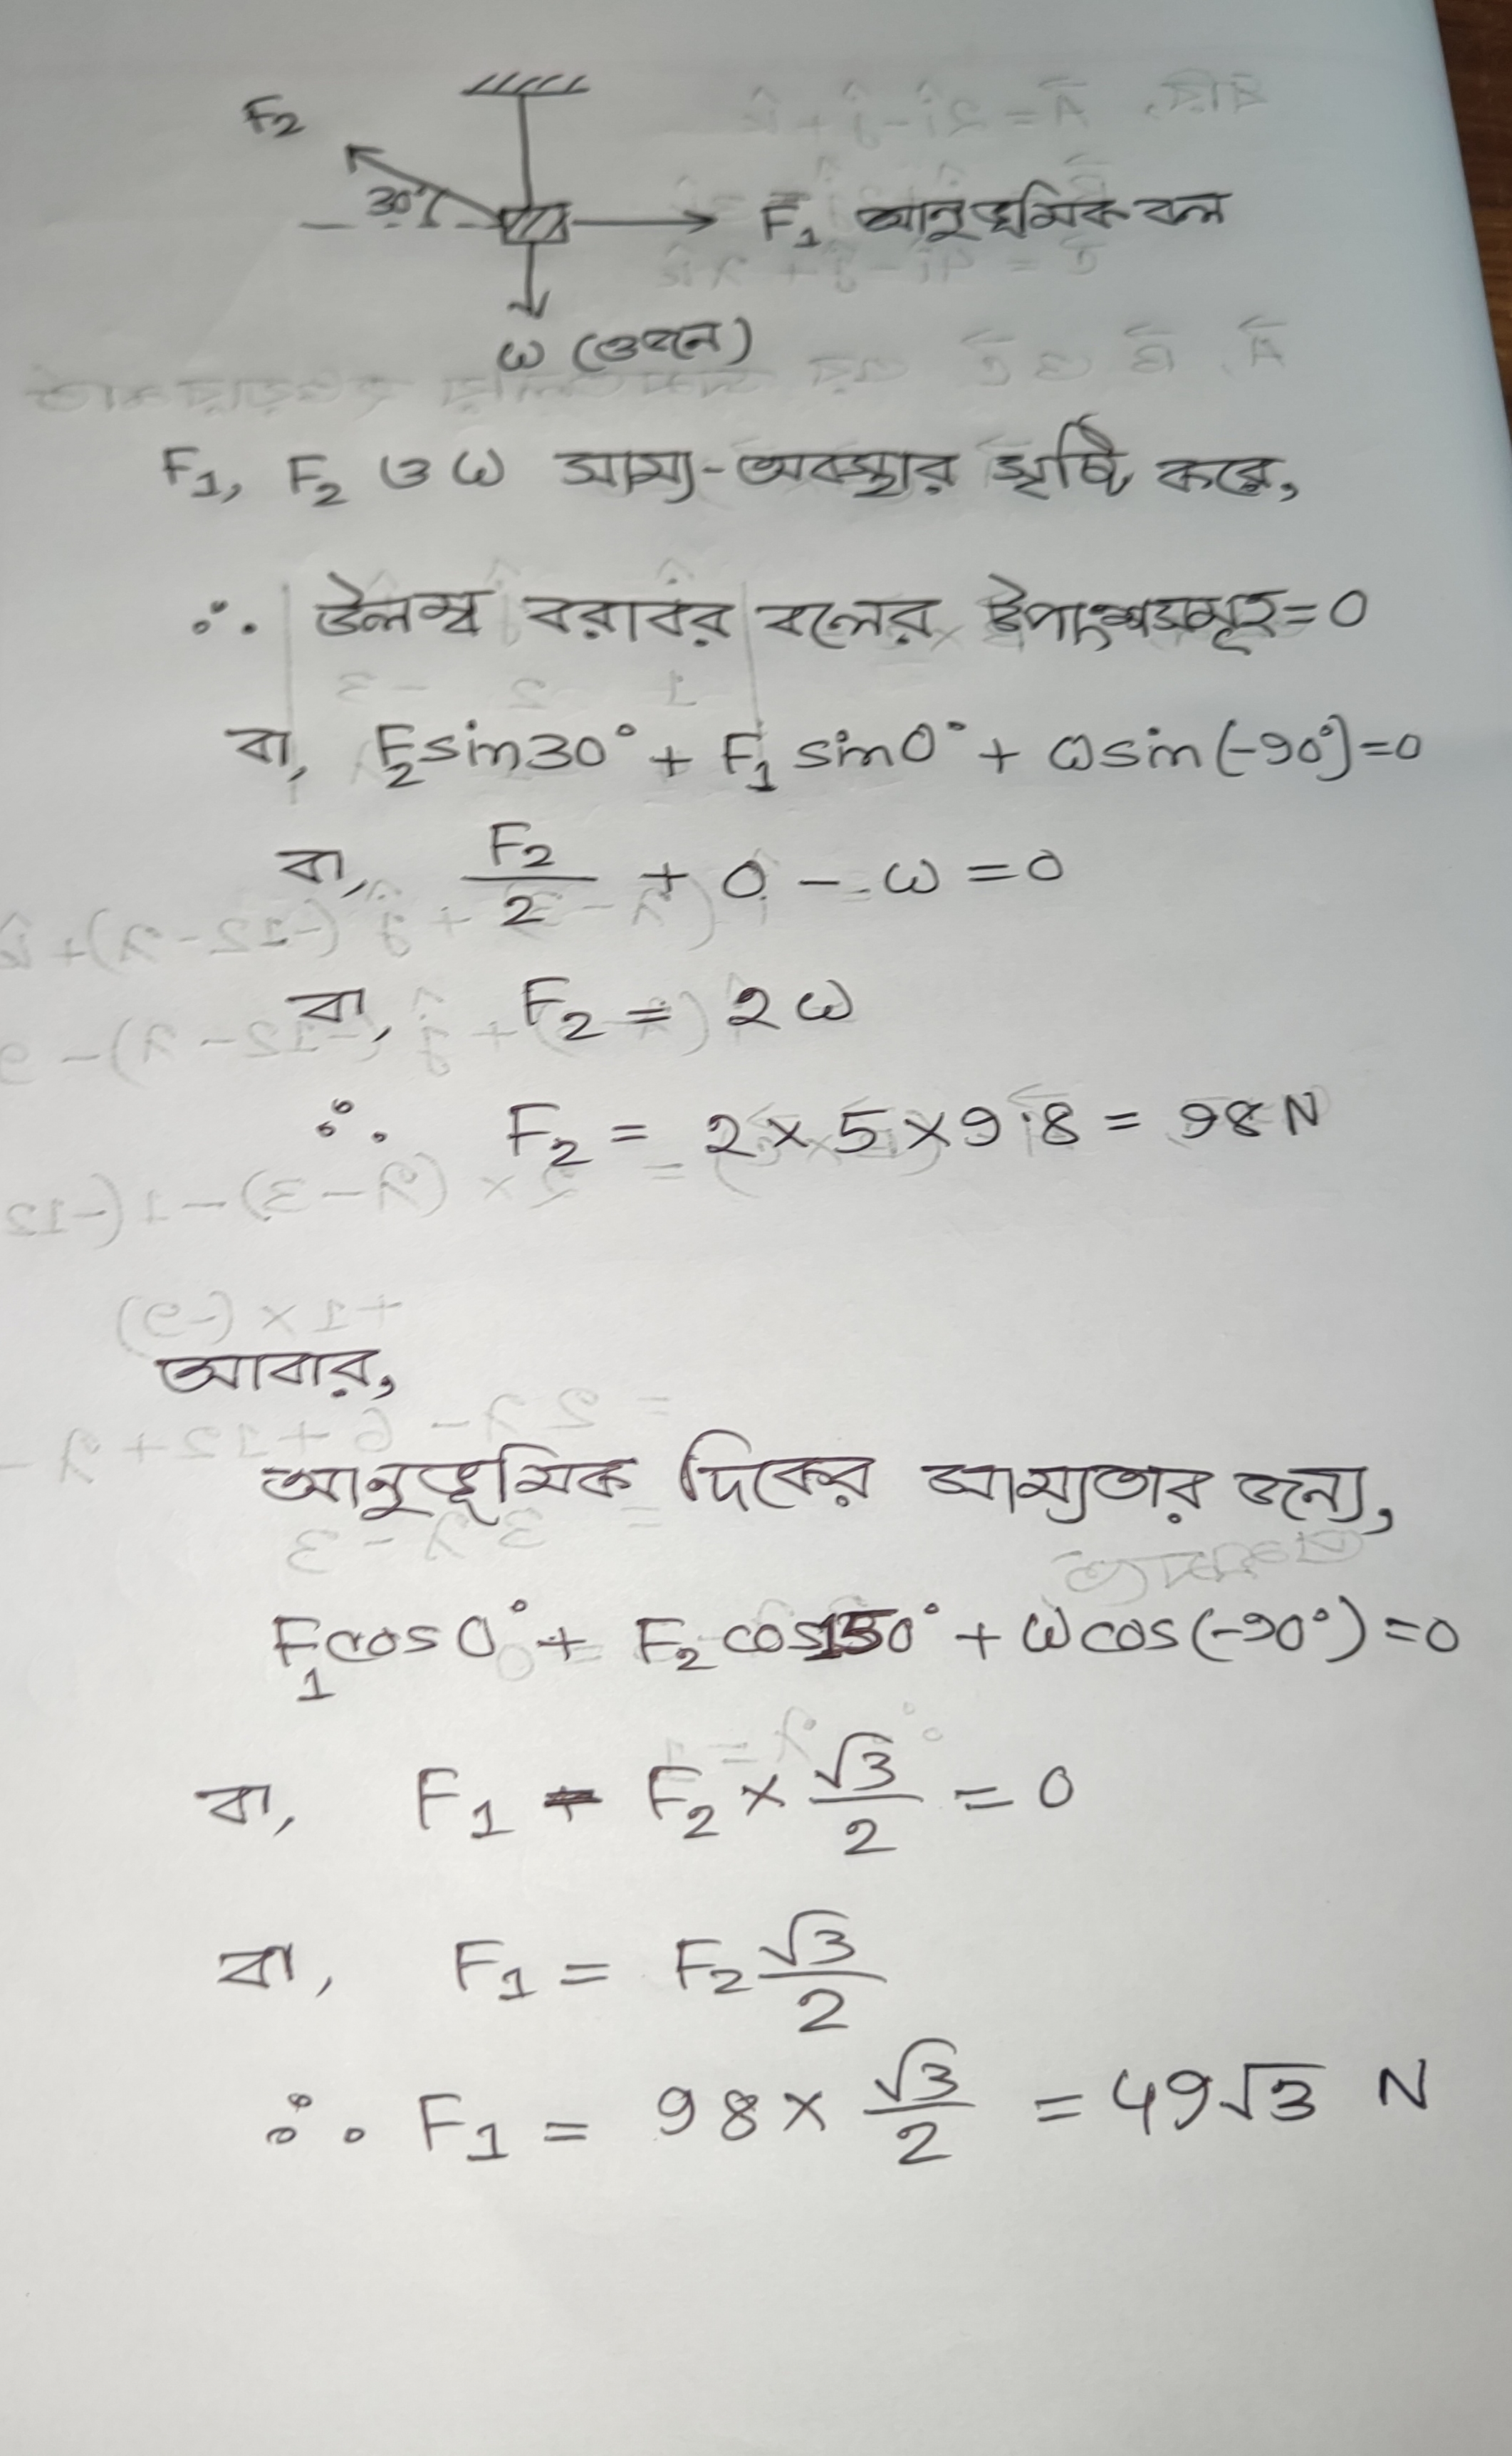 F₂
30°
F₁ আনুভূমিক বল
ω (ওজন)
F₁, F₂ ও ω সাম্য-অবস্থার সৃষ্টি করে,
∴ উলম্ব বরাবর বলের উপাংশসমূহ=0
বা, F₂sin30° + F₁ sin0° + ωsin(-90°)=0
বা, F₂/2 + 0 - ω = 0
বা, F₂ = 2ω
∴ F₂ = 2×5×9.8 = 98 N
আবার,
আনুভূমিক দিকের সাম্যতার জন্য,
F₁cos0° + F₂ cos150° + ωcos(-90°) = 0
বা, F₁ - F₂ × √3/2 = 0
বা, F₁ = F₂ √3/2
∴ F₁ = 98 × √3/2 = 49√3 N